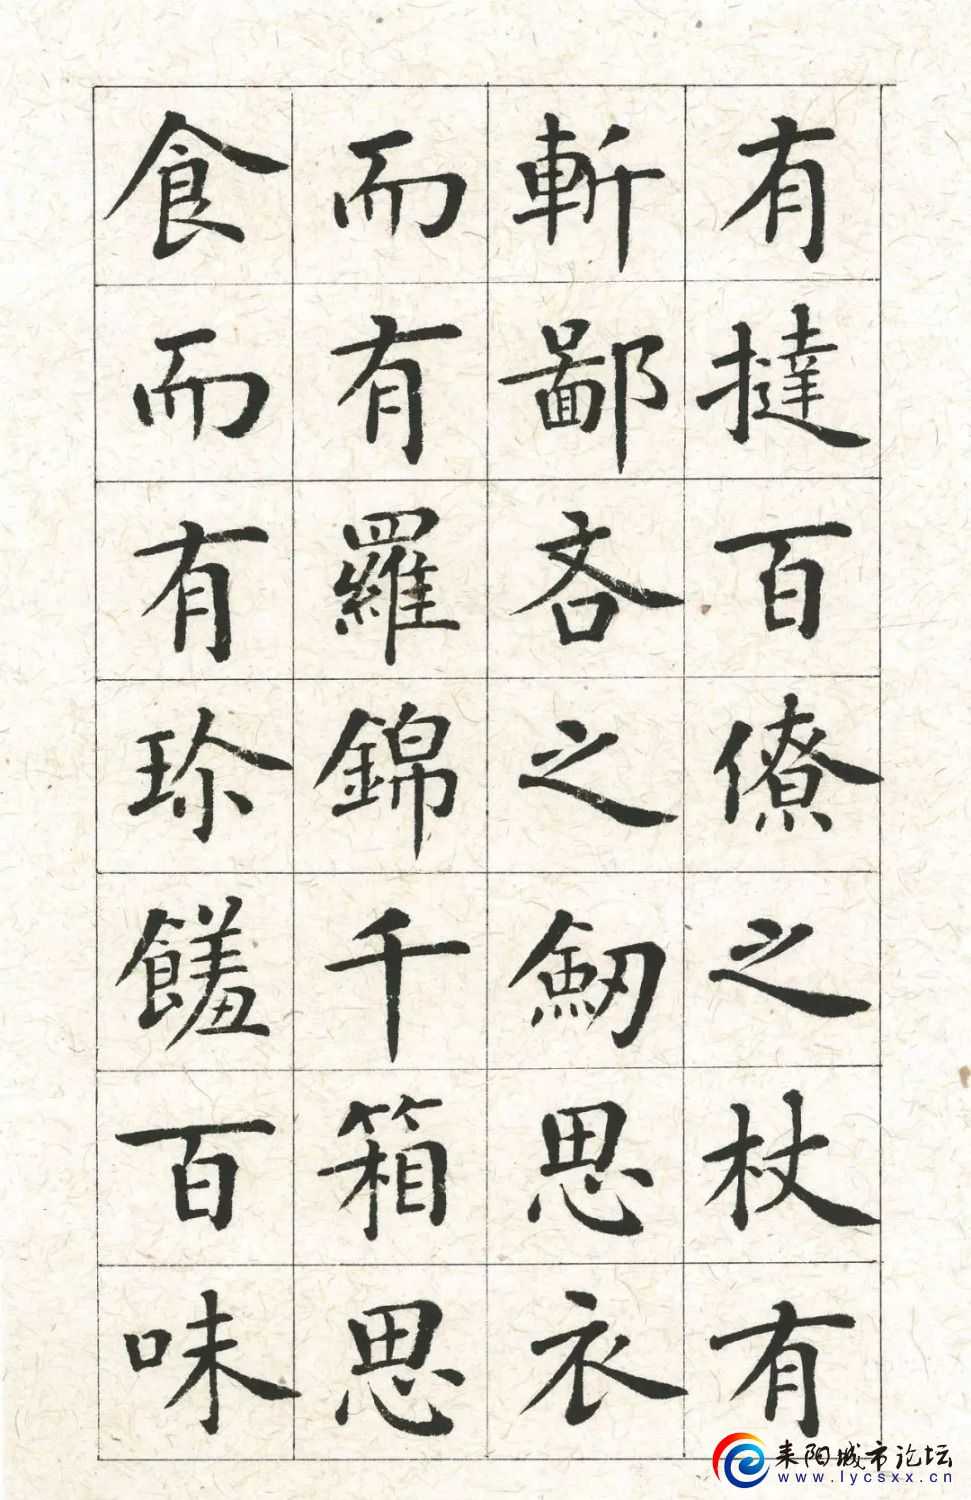 有撻百僚之杖有
斬鄙吝之劒思衣
而有羅錦千箱思
食而有珍饈百味
耒阳城市论坛
www.lycsxx.cn